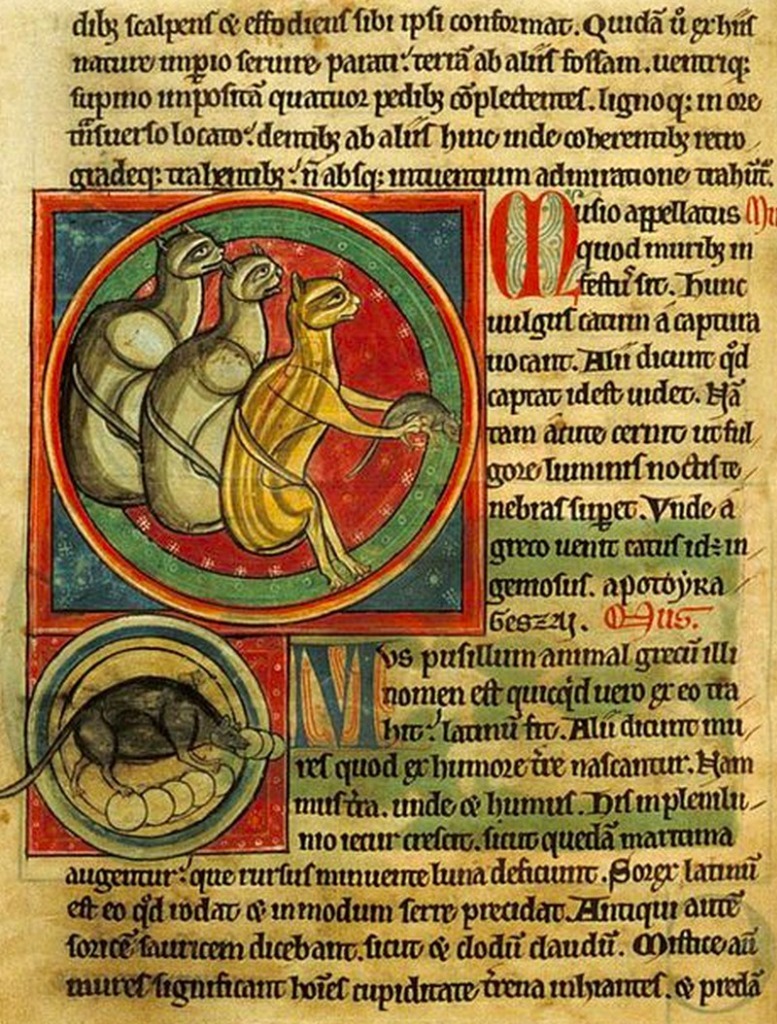 dibꝫ scalpens & effodiens sibi ipsi conformat. Quidā ů ex hiis
nature imꝑio seruire parati: terrā ab aliis fossam. uentriqꝫ
supino inpositā quatuor pedibꝫ cōplectentes. lignoqꝫ in ore
tnˢuerso locato: dentibꝫ ab aliis hinc inde coherentibꝫ retro
gradeqꝫ trahentibꝫ: ñ absqꝫ intuentium admiratione trahūt.
Musio appellatus
quod muribꝫ in
festuˢ sit. Hunc
uulgus catum a captura
uocant. Alii dicunt qd̄
captat id est uidet. Nā
tam acute cernit ut ful
gore luminis noctis te
nebras suꝑet. Vnde a
greco uenit catus id÷ in
gemosus. ΑΠΟΤΟΥΚΑ
. Mus.
Mvs pusillum animal grecū illi
nomen est quicqͥd uero ex eo tra
hit: latinū fit. Alii dicunt mu
res quod ex humore tr̄e nascantur. Nam
mus tr̄a. unde & humus. His in plenilu
nio iecur crescit. sicut quedā maritima
augentur: que rursus minuente luna deficiunt. Sorex latinū
est eo qd̄ rodat & in modum serre precidat. Antiqui autē
soricē sauricem dicebant. sicut & clodū claudū. Mistice aū
mures significant hoīes cupiditate tr̄rena inhiantes. & predā